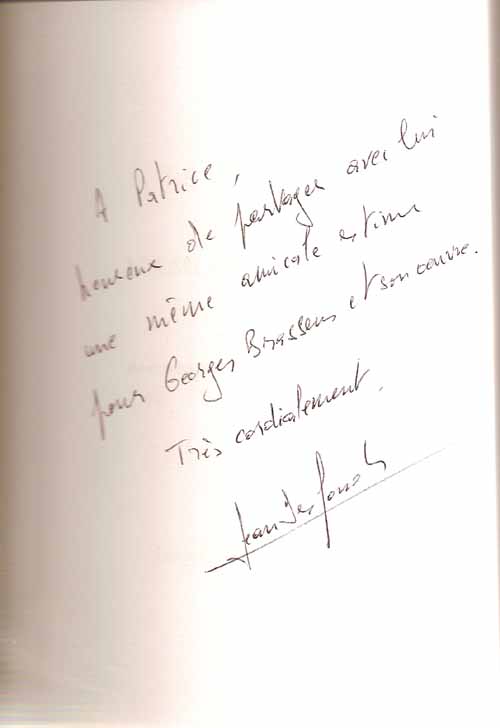 A Patrice,
heureux de partager avec lui
une même amicale estime
pour Georges Brassens et son œuvre.
Très cordialement.
Jean